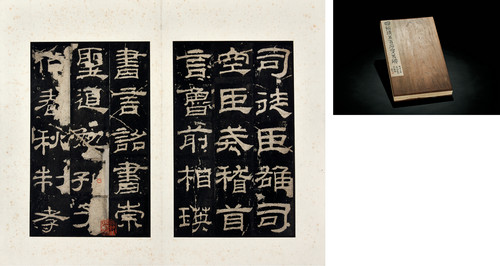 司徒臣雄司
空臣戒稽首
言魯前相瑛
書言詔書崇
聖道勉孔子
作春秋制孝